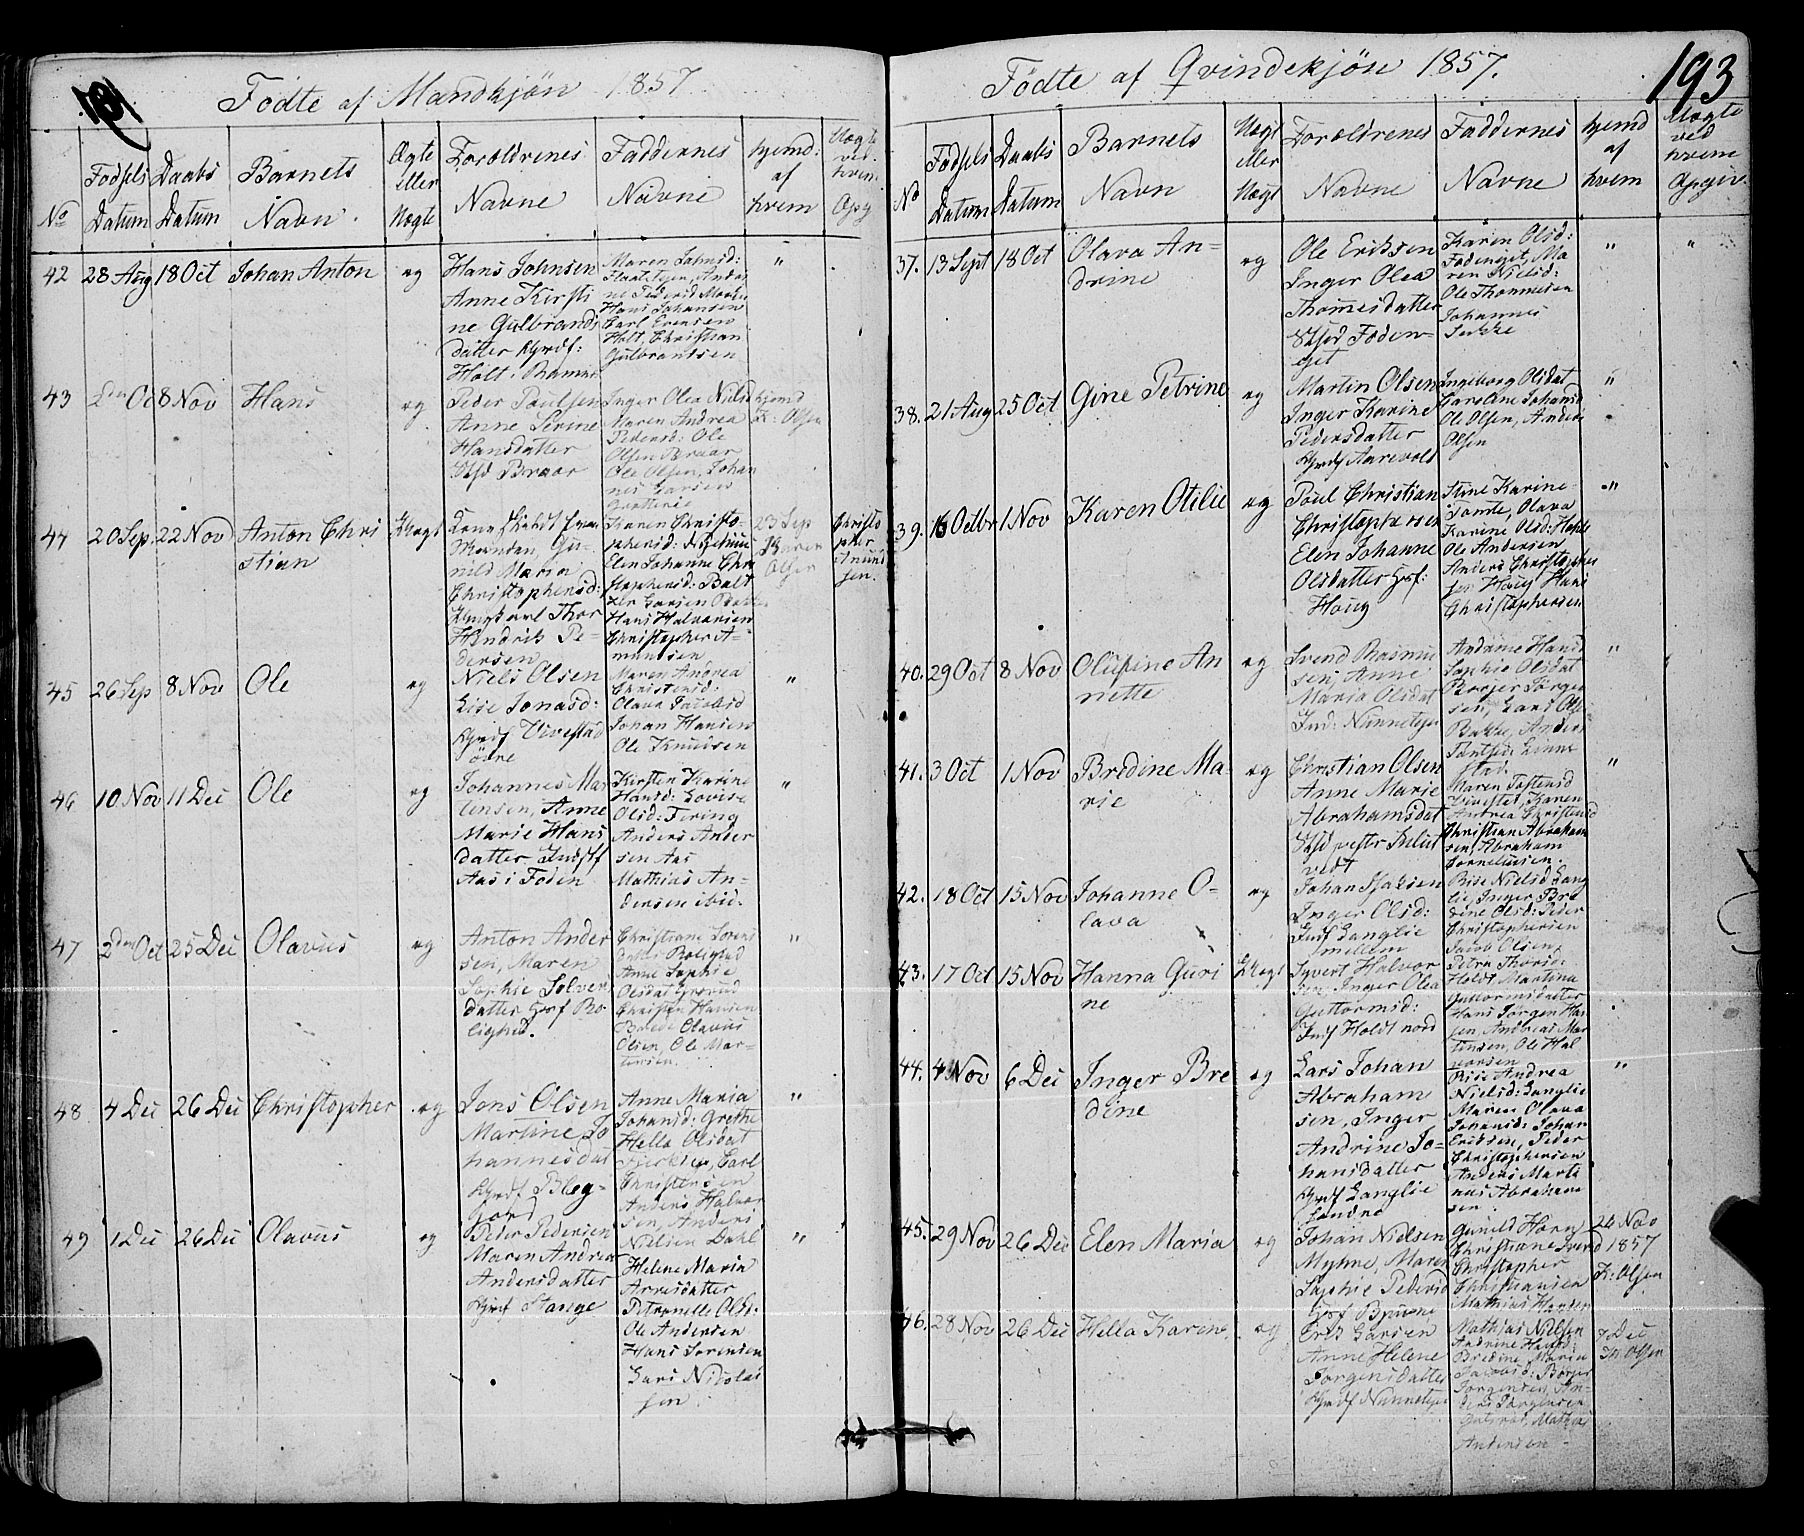 Födte af Mandkjön 1857
No
Födsels Datum
Daabs Datum
Barnets Navn.
Ægte eller Uægte
Forældrenes Navne
Faddernes Navne
hjemd: af hvem
Uægte ved. hvem Opg
42
28 Aug
18 Oct
Johan Anton
æg
Hans Johnsen
Anne Kirsti
ne Gulbrands
datter
Holt
Maren Johnsd:
Hans Johansen
Carl Evensen
Holt, Christian
Gulbrantsen
"
43
2den Oc
8 Nov
Hans
æg
Peder Poulsen
Anne Serine
Hansdatter
Braar
Inger Olea Nielsd
Maren Andrea
Pedersd: Ole
Olsen Braar
Ole Olsen, Johan
nes Larsen
hjemd
K: Olsen
44
20 Sep
22 Nov
Anton Chri
stian
Uægt
Gu-
nild Maria
Christophersd:
Thor
Hendrik Pe-
dersen
Karen Christo-
phersd:
Elen Johanne Chri
stophersd: Balt
zer Larsen
Hans Halvorsen
Christopher A-
mundsen
23 Sep
Olsen
Christo
pher
Amund
sen.
45
26 Sep
8 Nov
Ole
æg
Niels Olsen
Lise Jonasd:
Vivestad
ödre
Maren Andrea
Christensd:
Olava Jacobsd
Johan Hansen
Ole Knudsen
"
46
10 Nov
11 Dec
Ole
æg
Johannes Mar
tensen, Anne
Marie Hans
datter Indstf
Aas i Foden
Kirsten Karine
Hansd: Lovise
Olsd: Fering
Anders Ander
sen Aas
Mathias An-
dersen ibid.
"
47
2den Oct
25 Dec
Olavus
æg
Anton Ander
sen, Maren
Sophie Solver
datter Hosf Ro
lighed.
Christiane Lorens
Anne Sophie
Christen Hansen
Brede Olavus
Olsen, Ole Mar-
tinsen.
"
48
4 Dec
26 Dec
Christopher
æg
Jens Olsen
Martine Jo
hannesdat
Anne Maria
Johansd: Grethe
Hella Olsdat
Carl
Christensen
Anders Halvor
sen, Anders
Nielsen Dahl
"
49
1 Dec
26 Dec
Olavus
æg
Peder Pedersen
Maren Andrea
Andersdatter
Hymf Stange
Helene Maria
Arvesdatter
Petronelle Olsd:
Ole Andersen
Hans Sorensen
Lars Nicolai
sen.
"
Födte af Qvindekjön 1857.
193
No
Födsels Datum
Daabs Datum
Barnets Navn
Ægt eller Uægt
Forældrenes Navne
Faddernes Navne
hjemd af hvem
Uægte ved hvem Opgiv.
37.
13 Sept
18 Oct
Olava An-
drine
æg
Ole Eriksen
Inger Olea
Thomesdatter
Foden-
get
Karen Olsd:
Fodenget, Ma
ren Nielsd:
Ole Thommesen
Johannes
"
"
38.
21 Aug
25 Oct
Gine Petrine
æg
Martin Olsen
Inger Karine
Pedersdatter
Hymf Aarevold
Ingeborg Olsdat
Karen Ane Johansd
Ole Olsen, Anders
Olsen
"
39.
16 Octbr
1 Nov
Karen Otilie
æg
Poul Christian
Christophersen
Elen Johanne
Olsdatter Hosf:
Houg
Stine Karine
Tomte, Olava
Karine Olsd:
Ole Andersen
Anders Christopher
sen Houg Hans
Christophersen
"
40.
29 Oct
8 Nov
Olufine An
nette
æg
Svend Rasmu
sen, Anne
Maria Olsdat
Ind: Nannetsje
Andrine Hansd
Sophie Olsdat
Borger Jörgen
sen, Lars Ole
Bakke, Anders
"
41.
3 Oct
1 Nov
Bredine Ma-
rie
æg
Christian Olsen
Anne Marie
Abrahamsdat
vedt
Maren Tostensd
Vivestad, Karen
Andrea Christensd
Christian Abraham
sen, Abraham
Corneliusen.
"
42.
18 Oct
15 Nov
Johanne O-
lava
æg
Johan Isaksen
Inger Olsd:
Indf Langlie
mellem
Rise Nielsd Lang
lie, Inger Bre
dine Olsd: Peder
Christophersen
Jacob Olsen,
43.
17 Oct
15 Nov
Hanna Guri
ne
Uægt
Syvert Halvor
sen Inger Olea
Guttormsd:
Indf Holdt nord
Petra Thorsd:
Holdt Martina
Guttormsdatter
Hans Jörgen Han
sen, Andreas Mar
tinsen, Ole Hal
vorsen
44.
4 Nov
6 Dec
Inger Bre
dine
æg
Lars Johan
Abraham
sen, Inger
Andrine Jo-
hansdatter
Hymf Langlie
söndre
Rise Andrea
Nielsd: Langlie
Maren Olava
Johansd: Johan
Eriksen, Peder
Christophersen
Anders Marti
nus Abraham
sen.
"
45.
29 Nov
26 Dec
Elen Maria
æg
Johan Nielsen
Myhre, Maren
Sophie Pedersd
Gunild Horn
Christiane Svend
Christopher
Christiansen
Mathias Hansen
24 Nov
1857
K: Olsen
46.
28 Nov
26 Dec
Hella Karine
æg
Erik Larsen
Anne Helene
Jorgensdatter
Hymf Nannetsje
Mathias Nielsen
Andrine Hansd:
Bredine Maria
Jacobsd: Borger
Jorgensen, An-
ders Jorgensen
Mathias
Andersen
7 Dec
Olsen